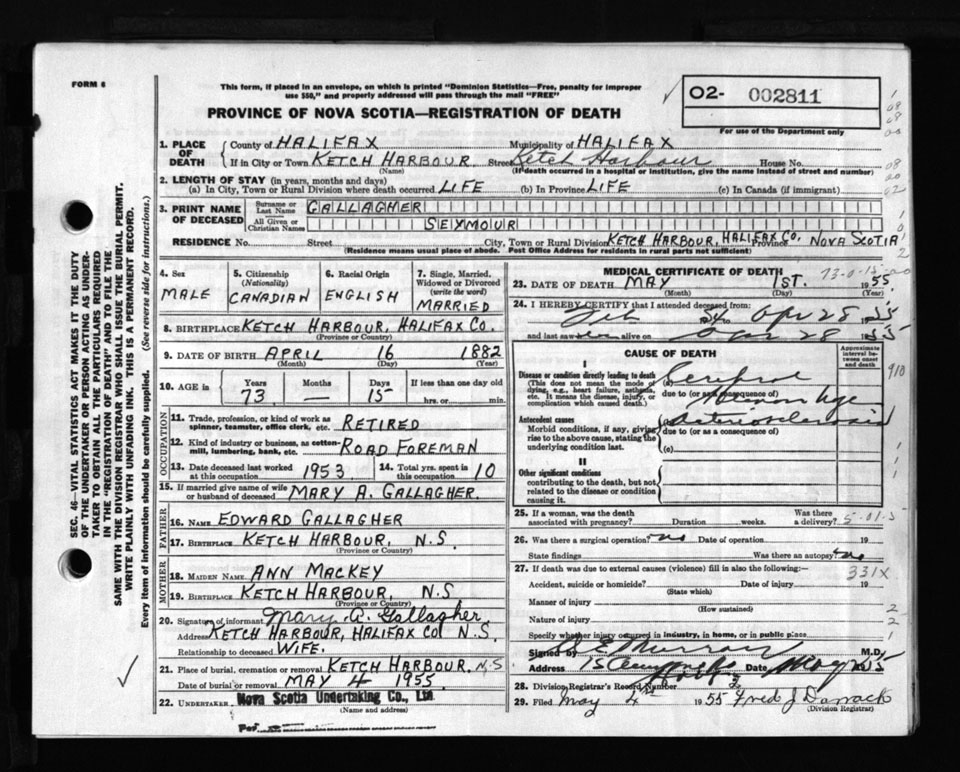 FORM 6
This form, if placed in an envelope, on which is printed "Dominion Statistics—Free, penalty for improper
use $50," and properly addressed will pass through the mail "FREE"
PROVINCE OF NOVA SCOTIA—REGISTRATION OF DEATH
O2- 002811
For use of the Department only
1. PLACE OF DEATH
County of HALIFAX Municipality of HALIFAX
If in City or Town KETCH HARBOUR Street Ketch Harbour House No.
(Name) (If death occurred in a hospital or institution, give the name instead of street and number)
2. LENGTH OF STAY (in years, months and days)
(a) In City, Town or Rural Division where death occurred LIFE (b) In Province LIFE (c) In Canada (if immigrant)
3. PRINT NAME OF DECEASED
Surname or Last Name GALLAGHER
All Given or Christian Names SEYMOUR
RESIDENCE No. Street City, Town or Rural Division KETCH HARBOUR, HALIFAX CO. Province NOVA SCOTIA
(Residence means usual place of abode. Post Office Address for residents in rural parts not sufficient)
SEC. 46—VITAL STATISTICS ACT MAKES IT THE DUTY
OF THE UNDERTAKER OR PERSON ACTING AS UNDER-
TAKER TO OBTAIN ALL THE PARTICULARS REQUIRED
IN THE "REGISTRATION OF DEATH" AND TO FILE THE
SAME WITH THE DIVISION REGISTRAR WHO SHALL ISSUE THE BURIAL PERMIT.
WRITE PLAINLY WITH UNFADING INK. THIS IS A PERMANENT RECORD.
Every item of information should be carefully supplied. (See reverse side for instructions.)
4. Sex MALE
5. Citizenship (Nationality) CANADIAN
6. Racial Origin ENGLISH
7. Single, Married, Widowed or Divorced (write the word) MARRIED
8. BIRTHPLACE KETCH HARBOUR, HALIFAX CO.
(Province or Country)
9. DATE OF BIRTH APRIL 16 1882
(Month) (Day) (Year)
10. AGE in Years Months Days If less than one day old
73 — 15 hrs. or min.
OCCUPATION
11. Trade, profession, or kind of work as
spinner, teamster, office clerk, etc. RETIRED
12. Kind of industry or business, as cotton-
mill, lumbering, bank, etc. ROAD FOREMAN
13. Date deceased last worked
at this occupation 1953
14. Total yrs. spent in
this occupation 10
15. If married give name of wife
or husband of deceased MARY A. GALLAGHER.
FATHER
16. NAME EDWARD GALLAGHER
17. BIRTHPLACE KETCH HARBOUR, N.S.
(Province or Country)
MOTHER
18. MAIDEN NAME ANN MACKEY
19. BIRTHPLACE KETCH HARBOUR, N.S
(Province or Country)
20. Signature of informant Mary A. Gallagher
Address KETCH HARBOUR, HALIFAX CO N.S.
Relationship to deceased WIFE.
21. Place of burial, cremation or removal KETCH HARBOUR. N.S
Date of burial or removal MAY 4 1955
22. UNDERTAKER Nova Scotia Undertaking Co., Ltd.
(Name and address)
Per
MEDICAL CERTIFICATE OF DEATH
23. DATE OF DEATH MAY 1ST. 1955.
(Month) (Day)
24. I HEREBY CERTIFY that I attended deceased from:
Feb 54 to Apr 28 1955
and last saw alive on Apr 28 1955
CAUSE OF DEATH
Approximate interval between onset and death
I
Disease or condition directly leading to death
(This does not mean the mode of
dying, e.g., heart failure, asthenia,
etc. It means the disease, injury, or
complication which caused death.)
(a) Cerebral
due to (or as a consequence of)
Antecedent causes
Morbid conditions, if any, giving
rise to the above cause, stating the
underlying condition last.
(b)
due to (or as a consequence of)
(c)
II
Other significant conditions
contributing to the death, but not
related to the disease or condition
causing it.
910
25. If a woman, was the death
associated with pregnancy? Duration weeks. Was there a delivery?
26. Was there a surgical operation? no Date of operation 19
State findings Was there an autopsy? no
27. If death was due to external causes (violence) fill in also the following:— 331X
Accident, suicide or homicide? Date of injury 19
(State which)
Manner of injury
(How sustained)
Nature of injury
Specify whether injury occurred in industry, in home, or in public place
Signed by E Murray M.D.
Address Date May 55
28. Division Registrar's Record Number
29. Filed May 4th 1955 Fred J Darrach
(Division Registrar)